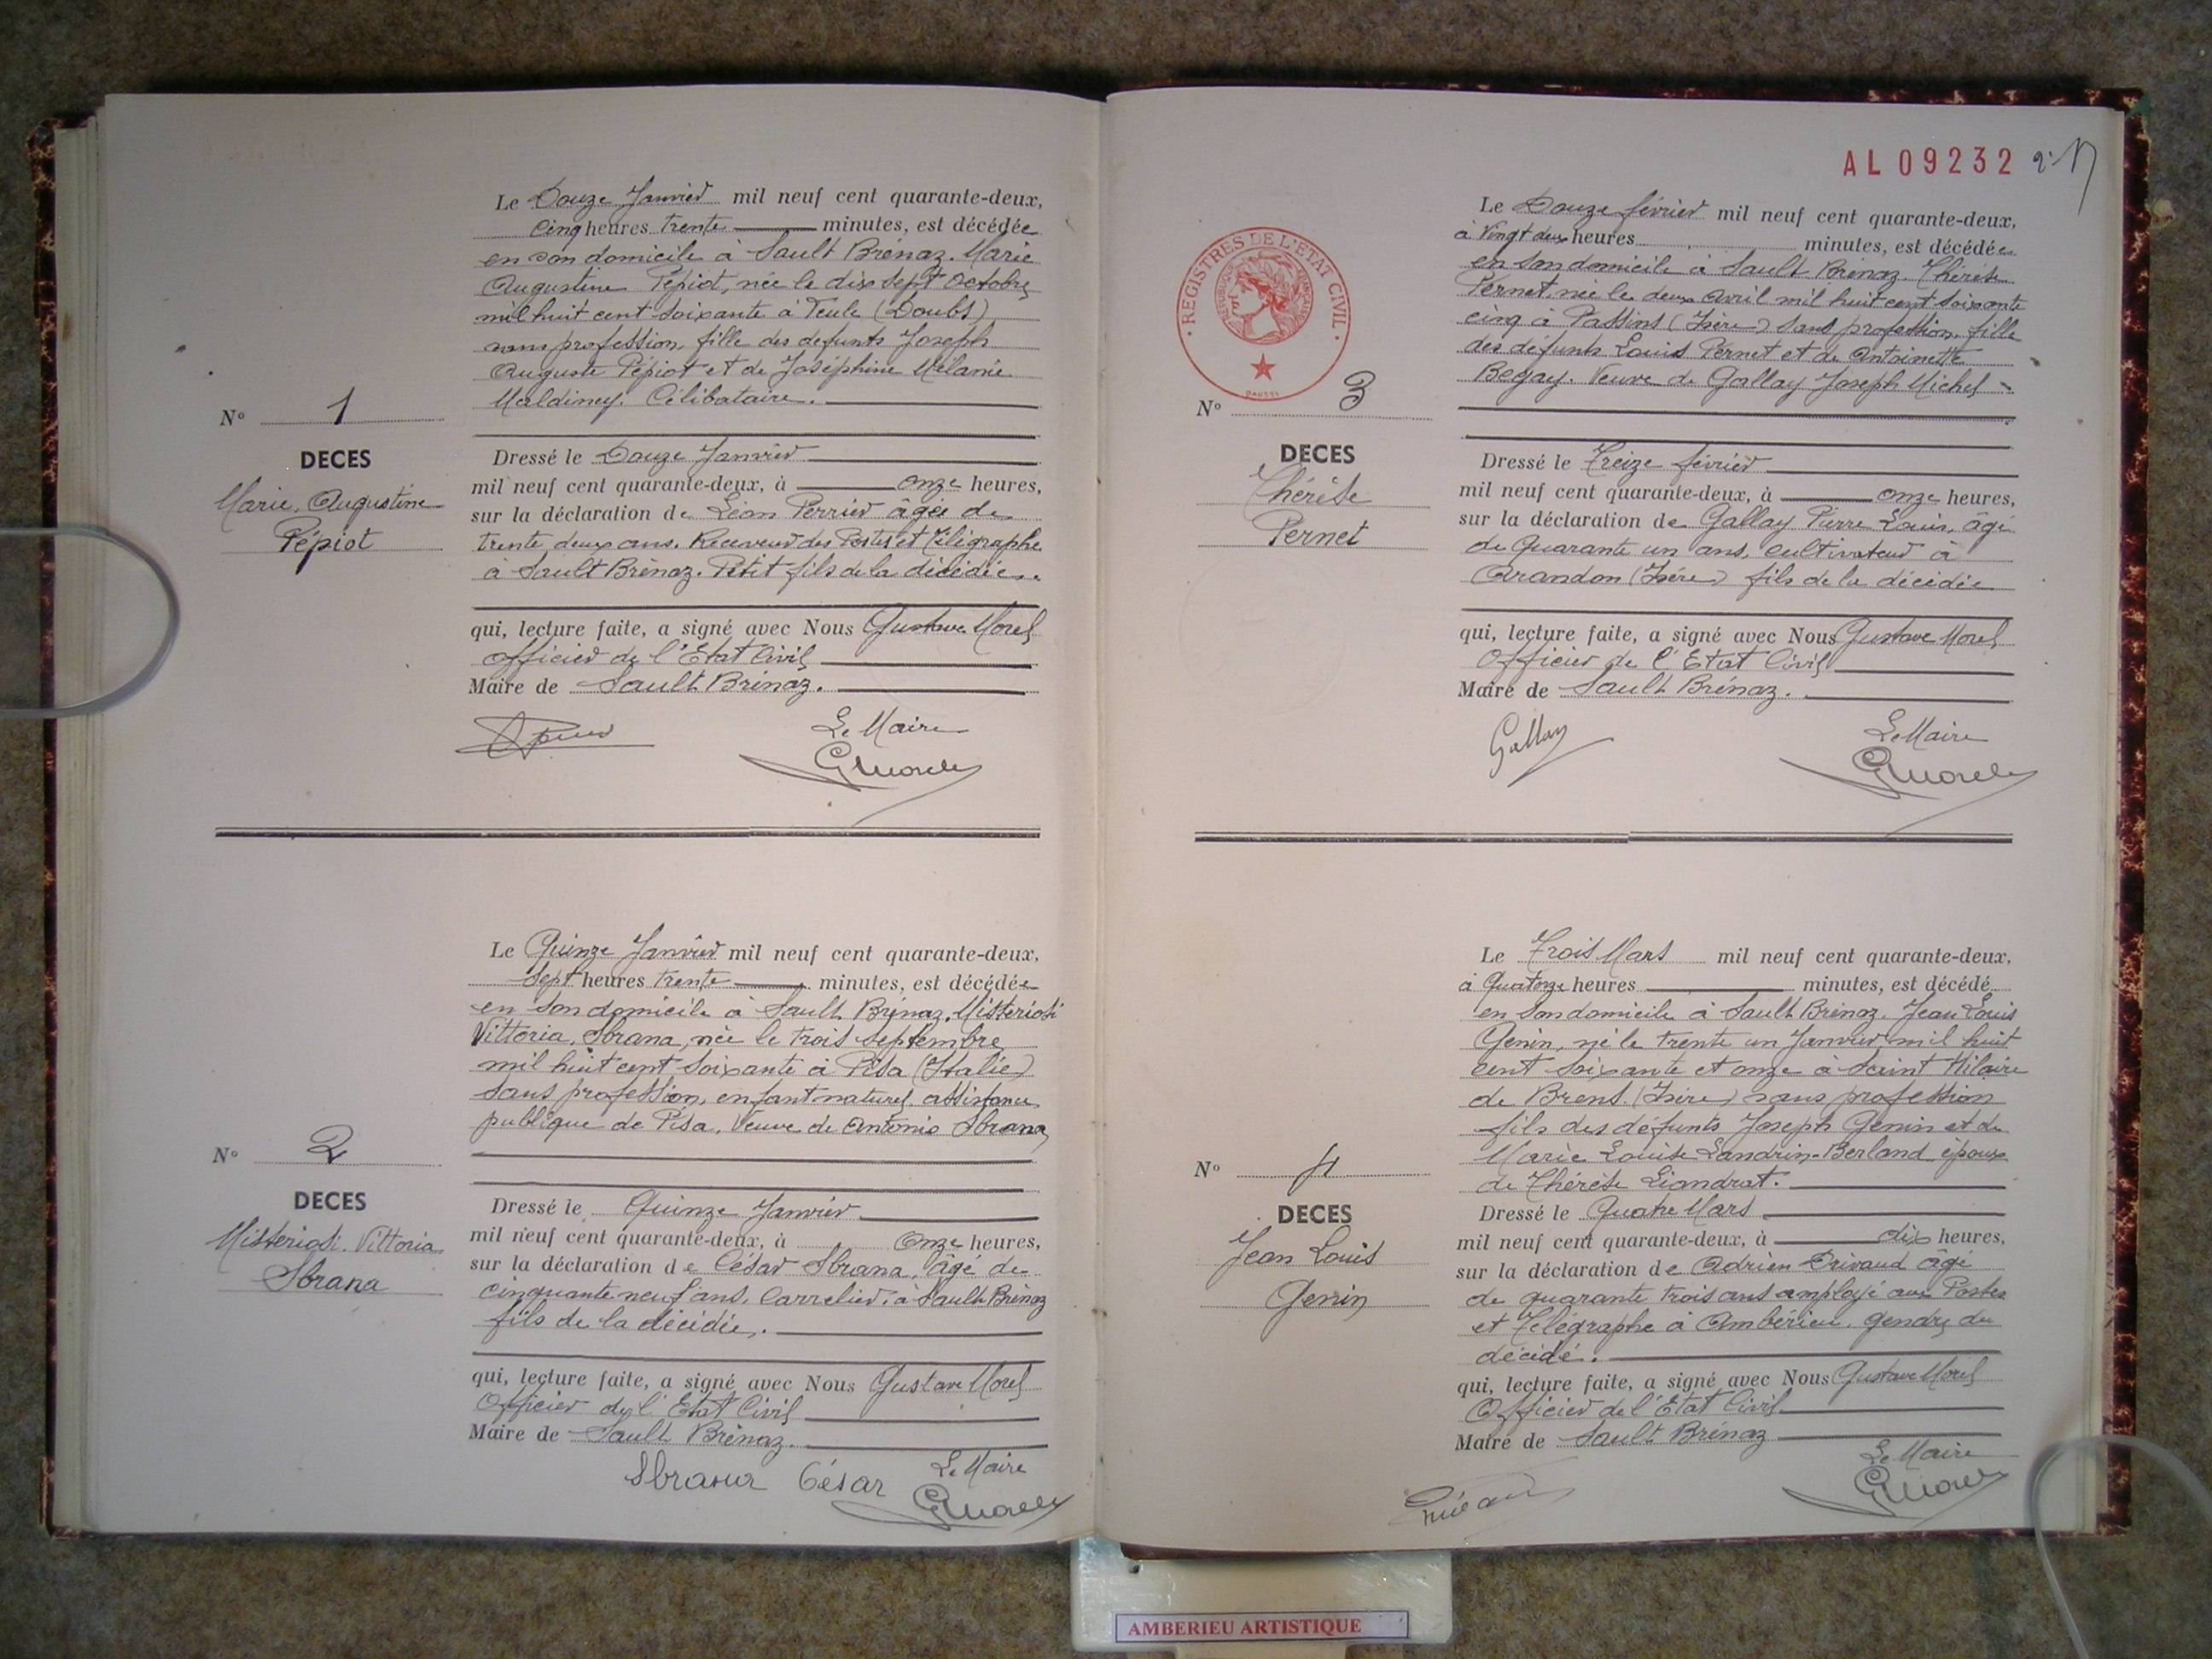 Le Douze Janvier mil neuf cent quarante-deux,
Cinq heures trente minutes, est décédée
en son domicile à Sault Brénaz. Marie
Augustine Pépiot, née le dix sept Octobre
mil huit cent soixante à Veule (Doubs)
sans profession, fille des defunts Joseph
Auguste Pépiot et de Joséphine Mélanie
Maldiney. Célibataire.
N° 1
DECES
Marie, Augustine
Pépiot
Dressé le Douze Janvier
mil neuf cent quarante-deux, à onze heures,
sur la déclaration de Léon Perrier âgé de
trente deux ans. Receveur des Postes et Télégraphe
à Sault Brénaz. Petit fils de la décédée.
qui, lecture faite, a signé avec Nous Gustave Morel
officier de l'Etat Civil
Maire de Sault Brénaz.
Le Maire
GMorel
Le Quinze Janvier mil neuf cent quarante-deux,
Sept heures trente minutes, est décédée
en son domicile à Sault Brénaz. Misteriosi
Vittoria, Sbrana, née le trois septembre
mil huit cent soixante à Pisa (Italie)
sans profession, enfant naturel, assistance
publique de Pisa. Veuve de Antonio Sbrana
N° 2
DECES
Misteriosi. Vittoria
Sbrana
Dressé le Quinze Janvier
mil neuf cent quarante-deux, à Onze heures,
sur la déclaration de César Sbrana, âgé de
cinquante neuf ans, Carrelier, à Sault Brénaz
fils de la décédée.
qui, lecture faite, a signé avec Nous Gustave Morel
Officier de l'Etat Civil
Maire de Sault Brénaz.
Le Maire
Sbrana César
GMorel
AL 09232
REGISTRES DE L'ETAT CIVIL
Le Douze février mil neuf cent quarante-deux,
à Vingt deux heures minutes, est décédée
en son domicile à Sault Brénaz. Thérèse
Pernet, née le deux avril mil huit cent soixante
cinq à Passins (Isère) sans profession, fille
des défunts Louis Pernet et de Antoinette
Begay. Veuve de Gallay Joseph Michel
N° 3
DECES
Thérèse
Pernet
Dressé le Treize février
mil neuf cent quarante-deux, à onze heures,
sur la déclaration de Gallay Pierre Louis, âgé
de Quarante un ans, cultivateur à
Arandon (Isère) fils de la décédée
qui, lecture faite, a signé avec Nous Gustave Morel
Officier de l'Etat Civil
Maire de Sault Brénaz.
Le Maire
Gallay
GMorel
Le Trois Mars mil neuf cent quarante-deux,
à Quatorze heures minutes, est décédé
en son domicile à Sault Brénaz. Jean Louis
Genin, né le trente un Janvier mil huit
cent soixante et onze à Saint Hilaire
de Brens. (Isère) sans profession
fils des défunts Joseph Genin et de
Marie Louise Landrin-Berland époux
de Thérèse Liandrat.
N° 4
DECES
Jean Louis
Genin
Dressé le Quatre Mars
mil neuf cent quarante-deux, à dix heures,
sur la déclaration de Adrien Privaud âgé
de quarante trois ans employé aux Postes
et Télégraphe à Ambérieu. gendre du
décédé.
qui, lecture faite, a signé avec Nous Gustave Morel
Officier de l'Etat Civil
Maire de Sault Brénaz
Le Maire
GMorel
AMBERIEU ARTISTIQUE